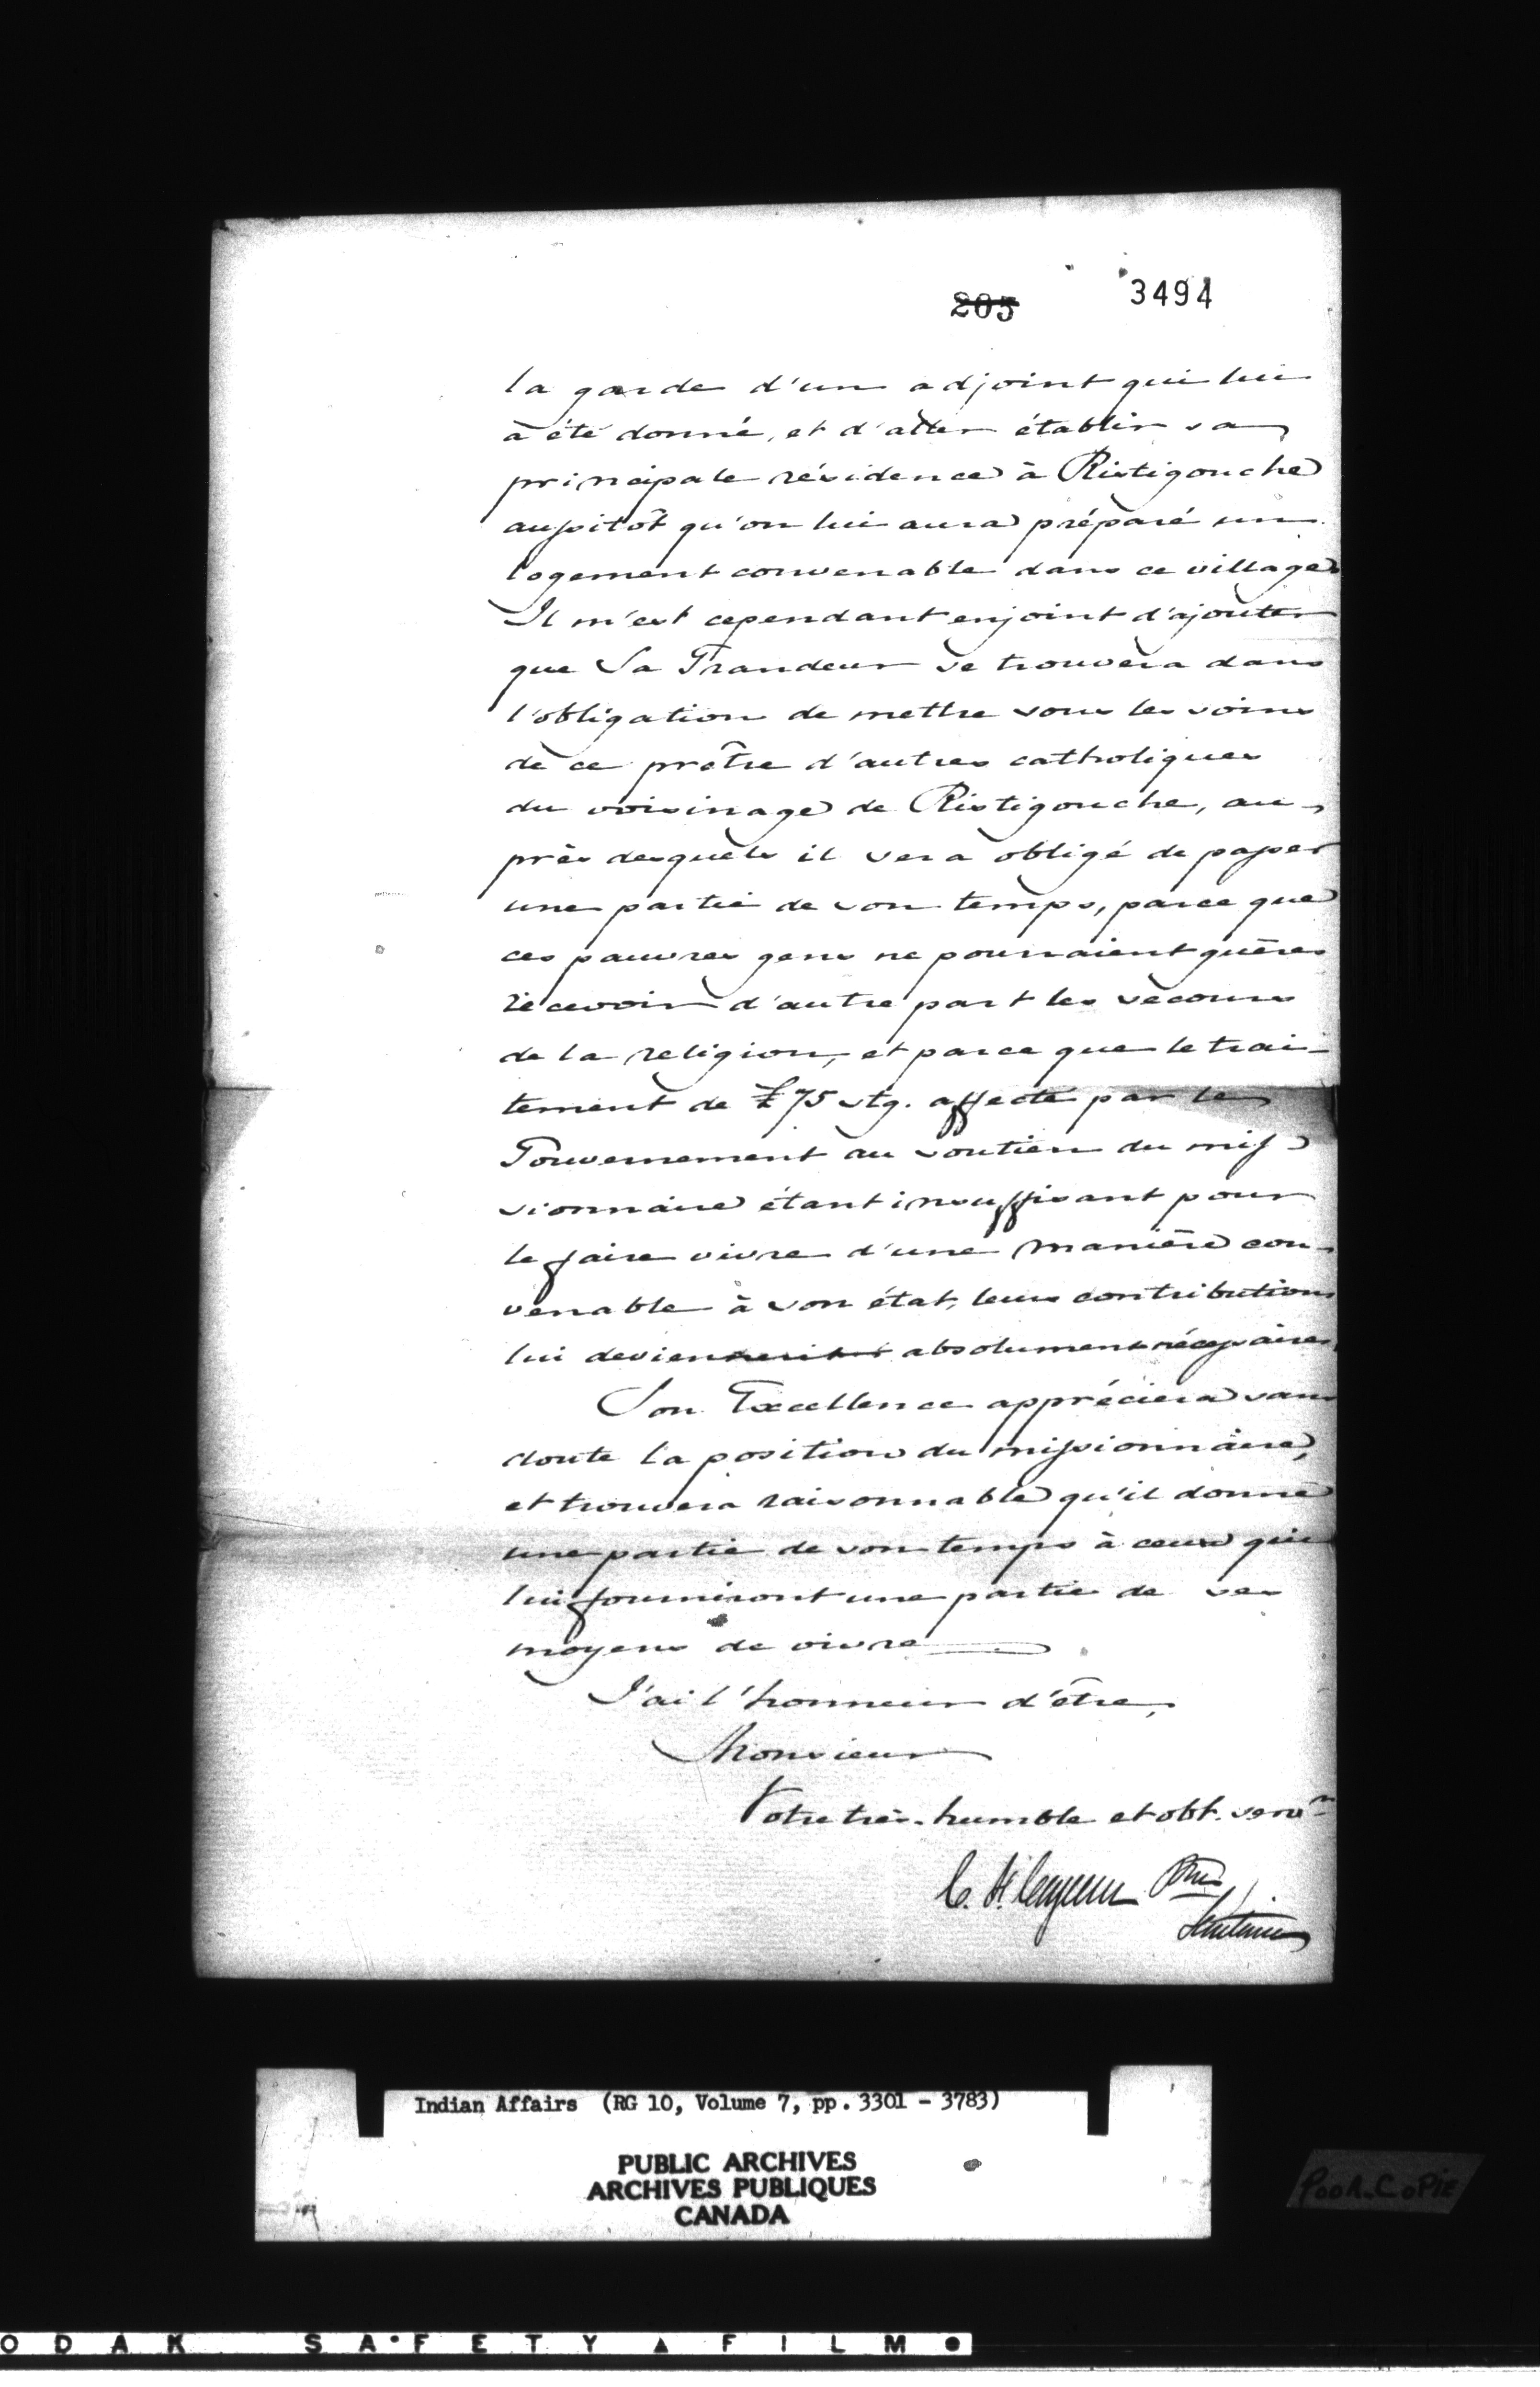 205 3494
la garde d'un adjoint qui lui
a été donné, et d'aller établir sa
principale résidence à Ristigouche
aussitôt qu'on lui aura préparé un
logement convenable dans ce village.
Il m'est cependant enjoint d'ajouter
que Sa Grandeur se trouvera dans
l'obligation de mettre sous les soins
de ce prêtre d'autres catholiques
du voisinage de Ristigouche, au-
près desquels il sera obligé de passer
une partie de son temps, parce que
ces pauvres gens ne pourraient guères
recevoir d'autre part les secours
de la religion, et parce que le trai-
tement de £75 stg. affecté par le
Gouvernement au soutien du mis-
sionnaire étant insuffisant pour
le faire vivre d'une manière con-
venable à son état, leurs contributions
lui deviennent absolument nécessaires.
Son Excellence appréciera sans
doute la position du missionnaire,
et trouvera raisonnable qu'il donne
une partie de son temps à ceux qui
lui fourniront une partie de ses
moyens de vivre
J'ai l'honneur d'être,
Monsieur
Votre très-humble et obt. servr
C. F. Cazeau Ptre
Secrétaire
Indian Affairs (RG 10, Volume 7, pp. 3301 - 3783)
PUBLIC ARCHIVES
ARCHIVES PUBLIQUES
CANADA
POOR COPIE
ODAK SAFETY FILM